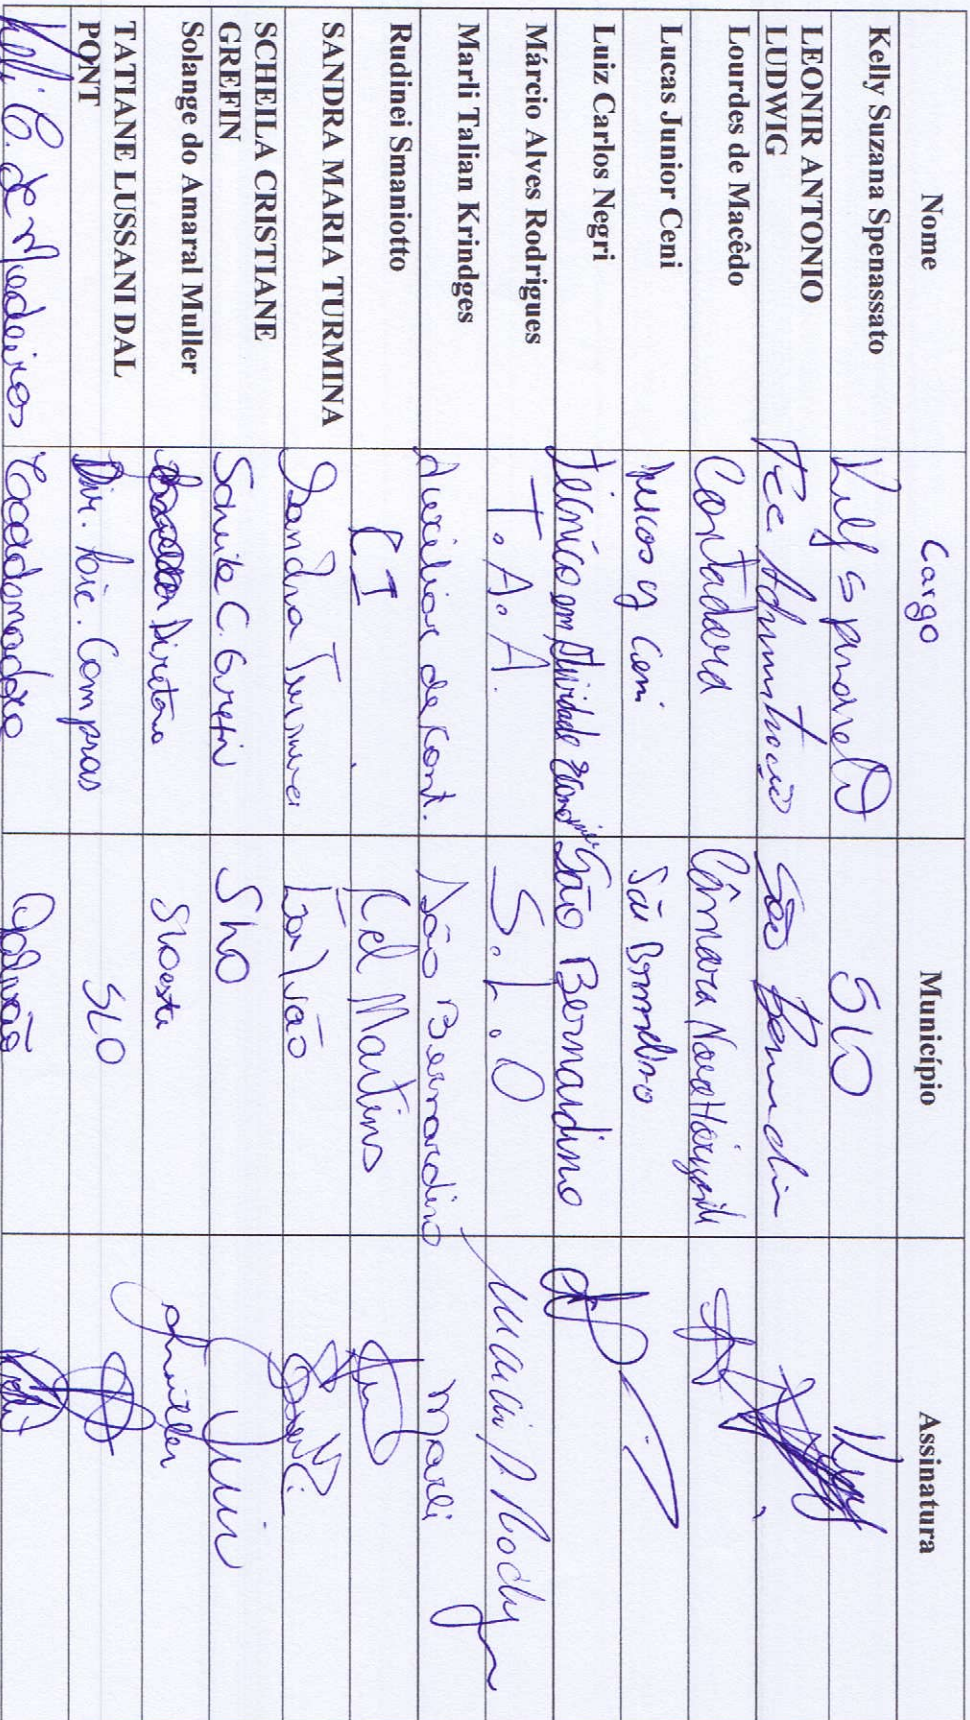 Nome Cargo Município Assinatura
Kelly Suzana Spenassato SLO
LEONIR ANTONIO
LUDWIG Tec. Administração São Bernardin
Lourdes de Macêdo Contadora Câmara Novo Horizonte
Lucas Junior Ceni Lucas Ceni São Bernardino
Luiz Carlos Negri Técnico em Atividade São Bernardino
Márcio Alves Rodrigues T.A.A. S.L.O
Marli Talian Krindges Auxiliar de Cont. São Bernardino Marli
Rudinei Smaniotto CI Cel Martins
SANDRA MARIA TURMINA Sandra Turmina
SCHEILA CRISTIANE
GREFIN Scheila C. Grefin Slo
Solange do Amaral Muller Diretora SLoeste Smuller
TATIANE LUSSANI DAL
PONT Dir. Lic. Compras SLO
Kelli C. de Medeiros Galvão